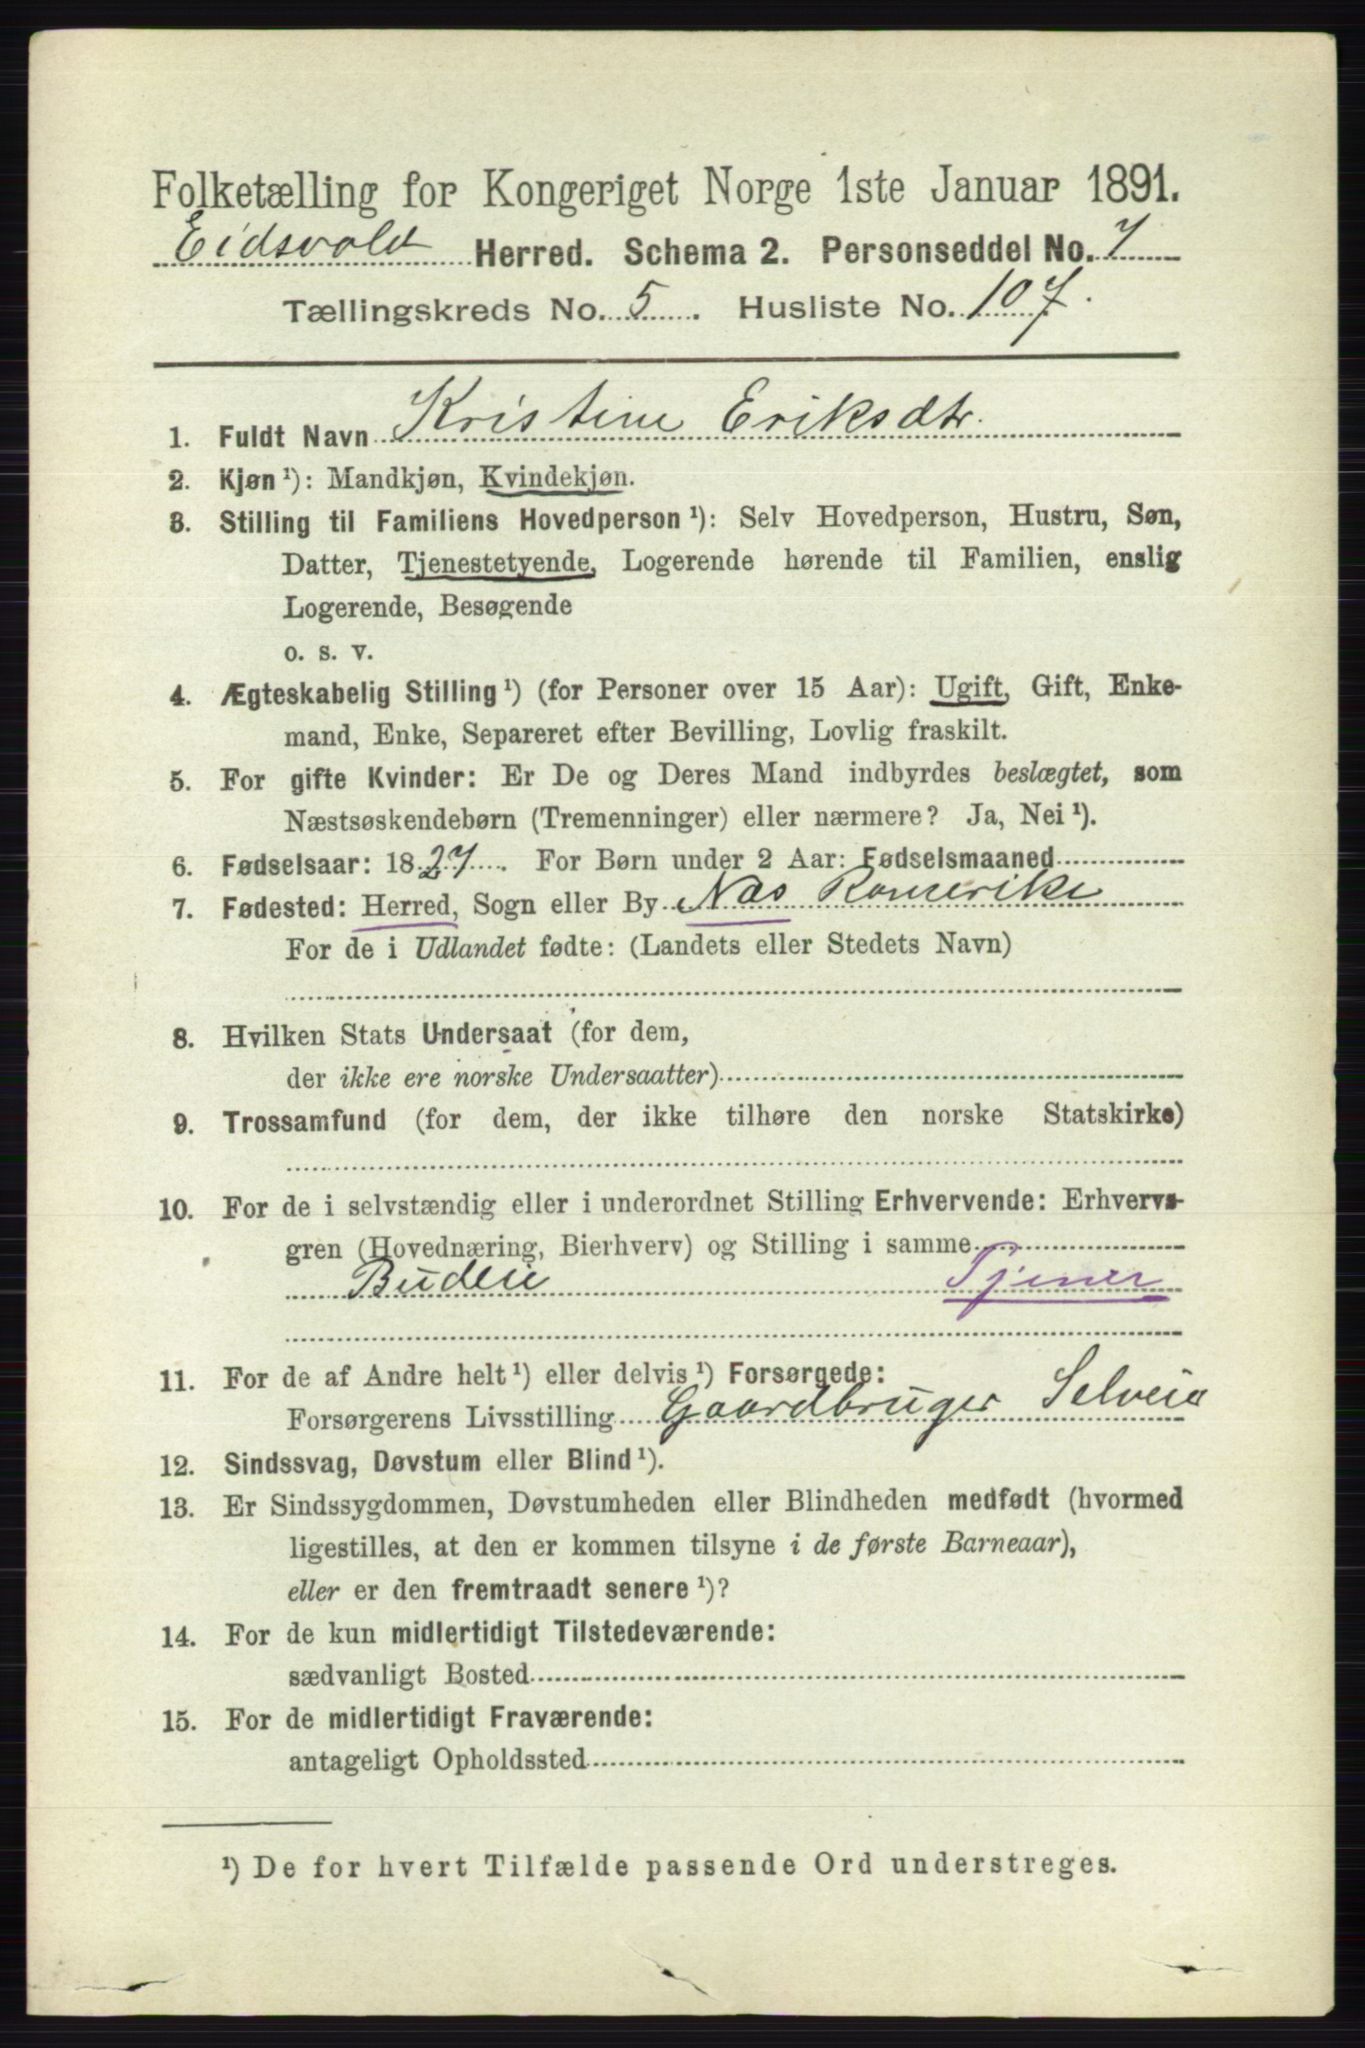 Folketælling for Kongeriget Norge 1ste Januar 1891.
Eidsvold Herred. Schema 2. Personseddel No. 7
Tællingskreds No. 5. Husliste No. 107.
1. Fuldt Navn Kristine Eriksdtr.
2. Kjøn ¹): Mandkjøn, Kvindekjøn.
3. Stilling til Familiens Hovedperson ¹): Selv Hovedperson, Hustru, Søn,
Datter, Tjenestetyende, Logerende hørende til Familien, enslig
Logerende, Besøgende
o. s. v.
4. Ægteskabelig Stilling ¹) (for Personer over 15 Aar): Ugift, Gift, Enke-
mand, Enke, Separeret efter Bevilling, Lovlig fraskilt.
5. For gifte Kvinder: Er De og Deres Mand indbyrdes beslægtet, som
Næstsøskendebørn (Tremenninger) eller nærmere? Ja, Nei ¹).
6. Fødselsaar: 1827. For Børn under 2 Aar: Fødselsmaaned
7. Fødested: Herred, Sogn eller By Næs Romerike
For de i Udlandet fødte: (Landets eller Stedets Navn)
8. Hvilken Stats Undersaat (for dem,
der ikke ere norske Undersaatter)
9. Trossamfund (for dem, der ikke tilhøre den norske Statskirke)
10. For de i selvstændig eller i underordnet Stilling Erhvervende: Erhvervs-
gren (Hovednæring, Bierhverv) og Stilling i samme
Budeie Tjener
11. For de af Andre helt ¹) eller delvis ¹) Forsørgede:
Forsørgerens Livsstilling Gaardbruger Selveie
12. Sindssvag, Døvstum eller Blind ¹).
13. Er Sindssygdommen, Døvstumheden eller Blindheden medfødt (hvormed
ligestilles, at den er kommen tilsyne i de første Barneaar),
eller er den fremtraadt senere ¹)?
14. For de kun midlertidigt Tilstedeværende:
sædvanligt Bosted
15. For de midlertidigt Fraværende:
antageligt Opholdssted
¹) De for hvert Tilfælde passende Ord understreges.